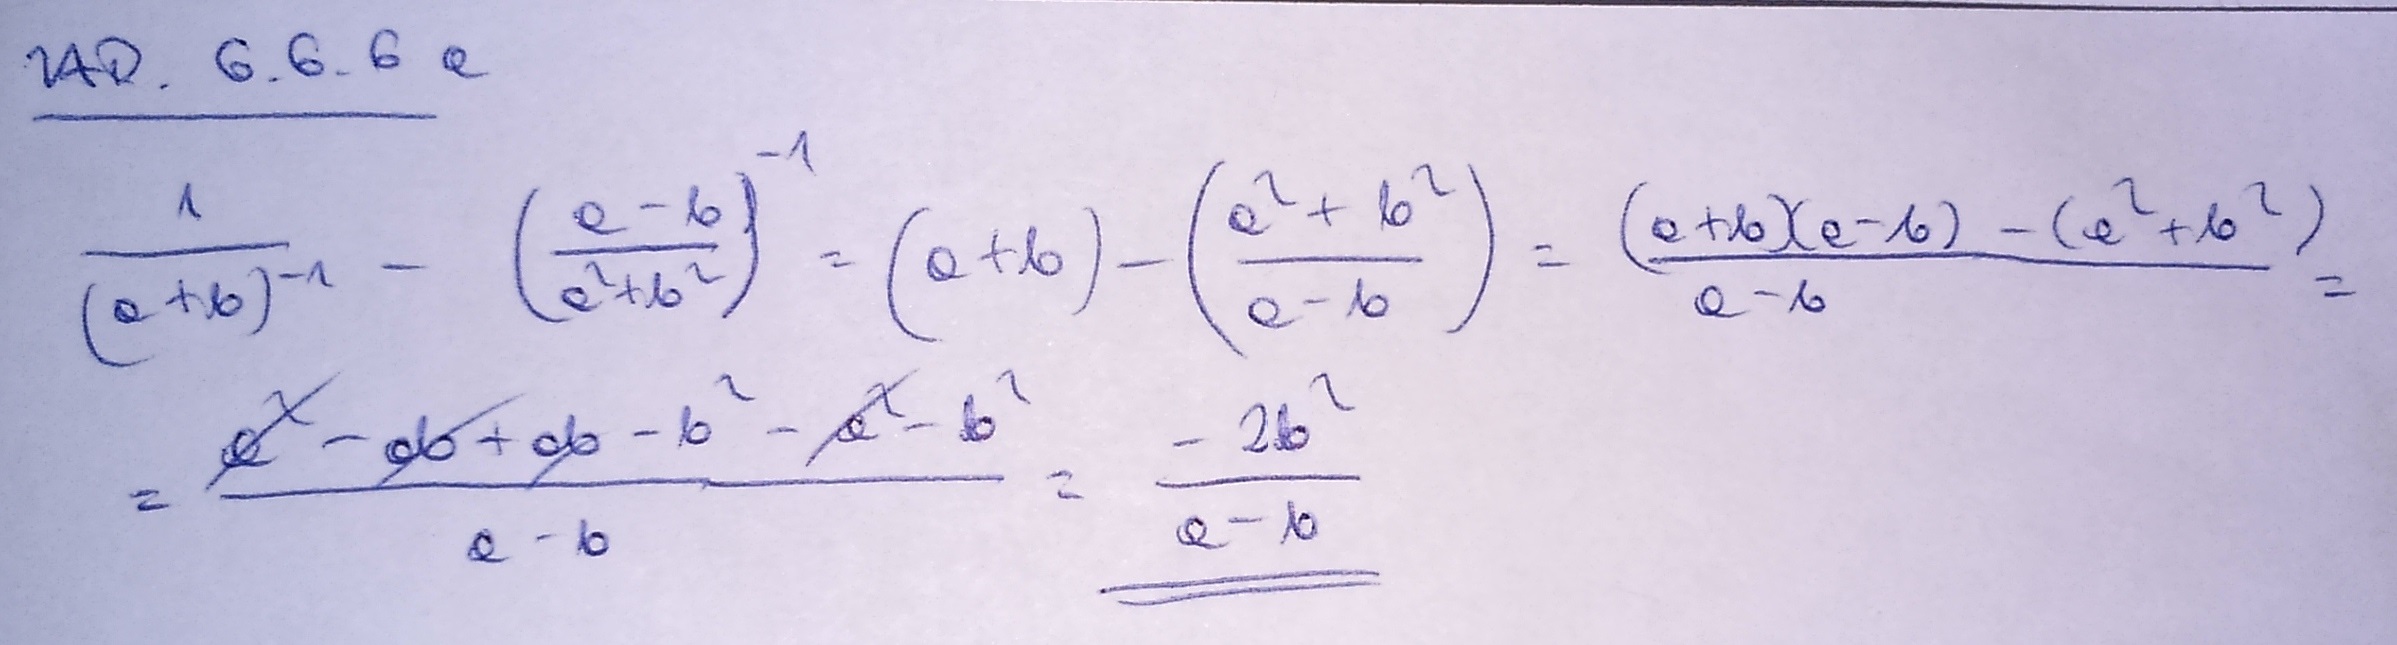 ZAD. 6.6.6 a
1/(a+b)⁻¹ - ((a-b)/(a²+b²))⁻¹ = (a+b) - ((a²+b²)/(a-b)) = ((a+b)(a-b) - (a²+b²))/(a-b) =
= (a² - ab + ab - b² - a² - b²)/(a-b) = (-2b²)/(a-b)